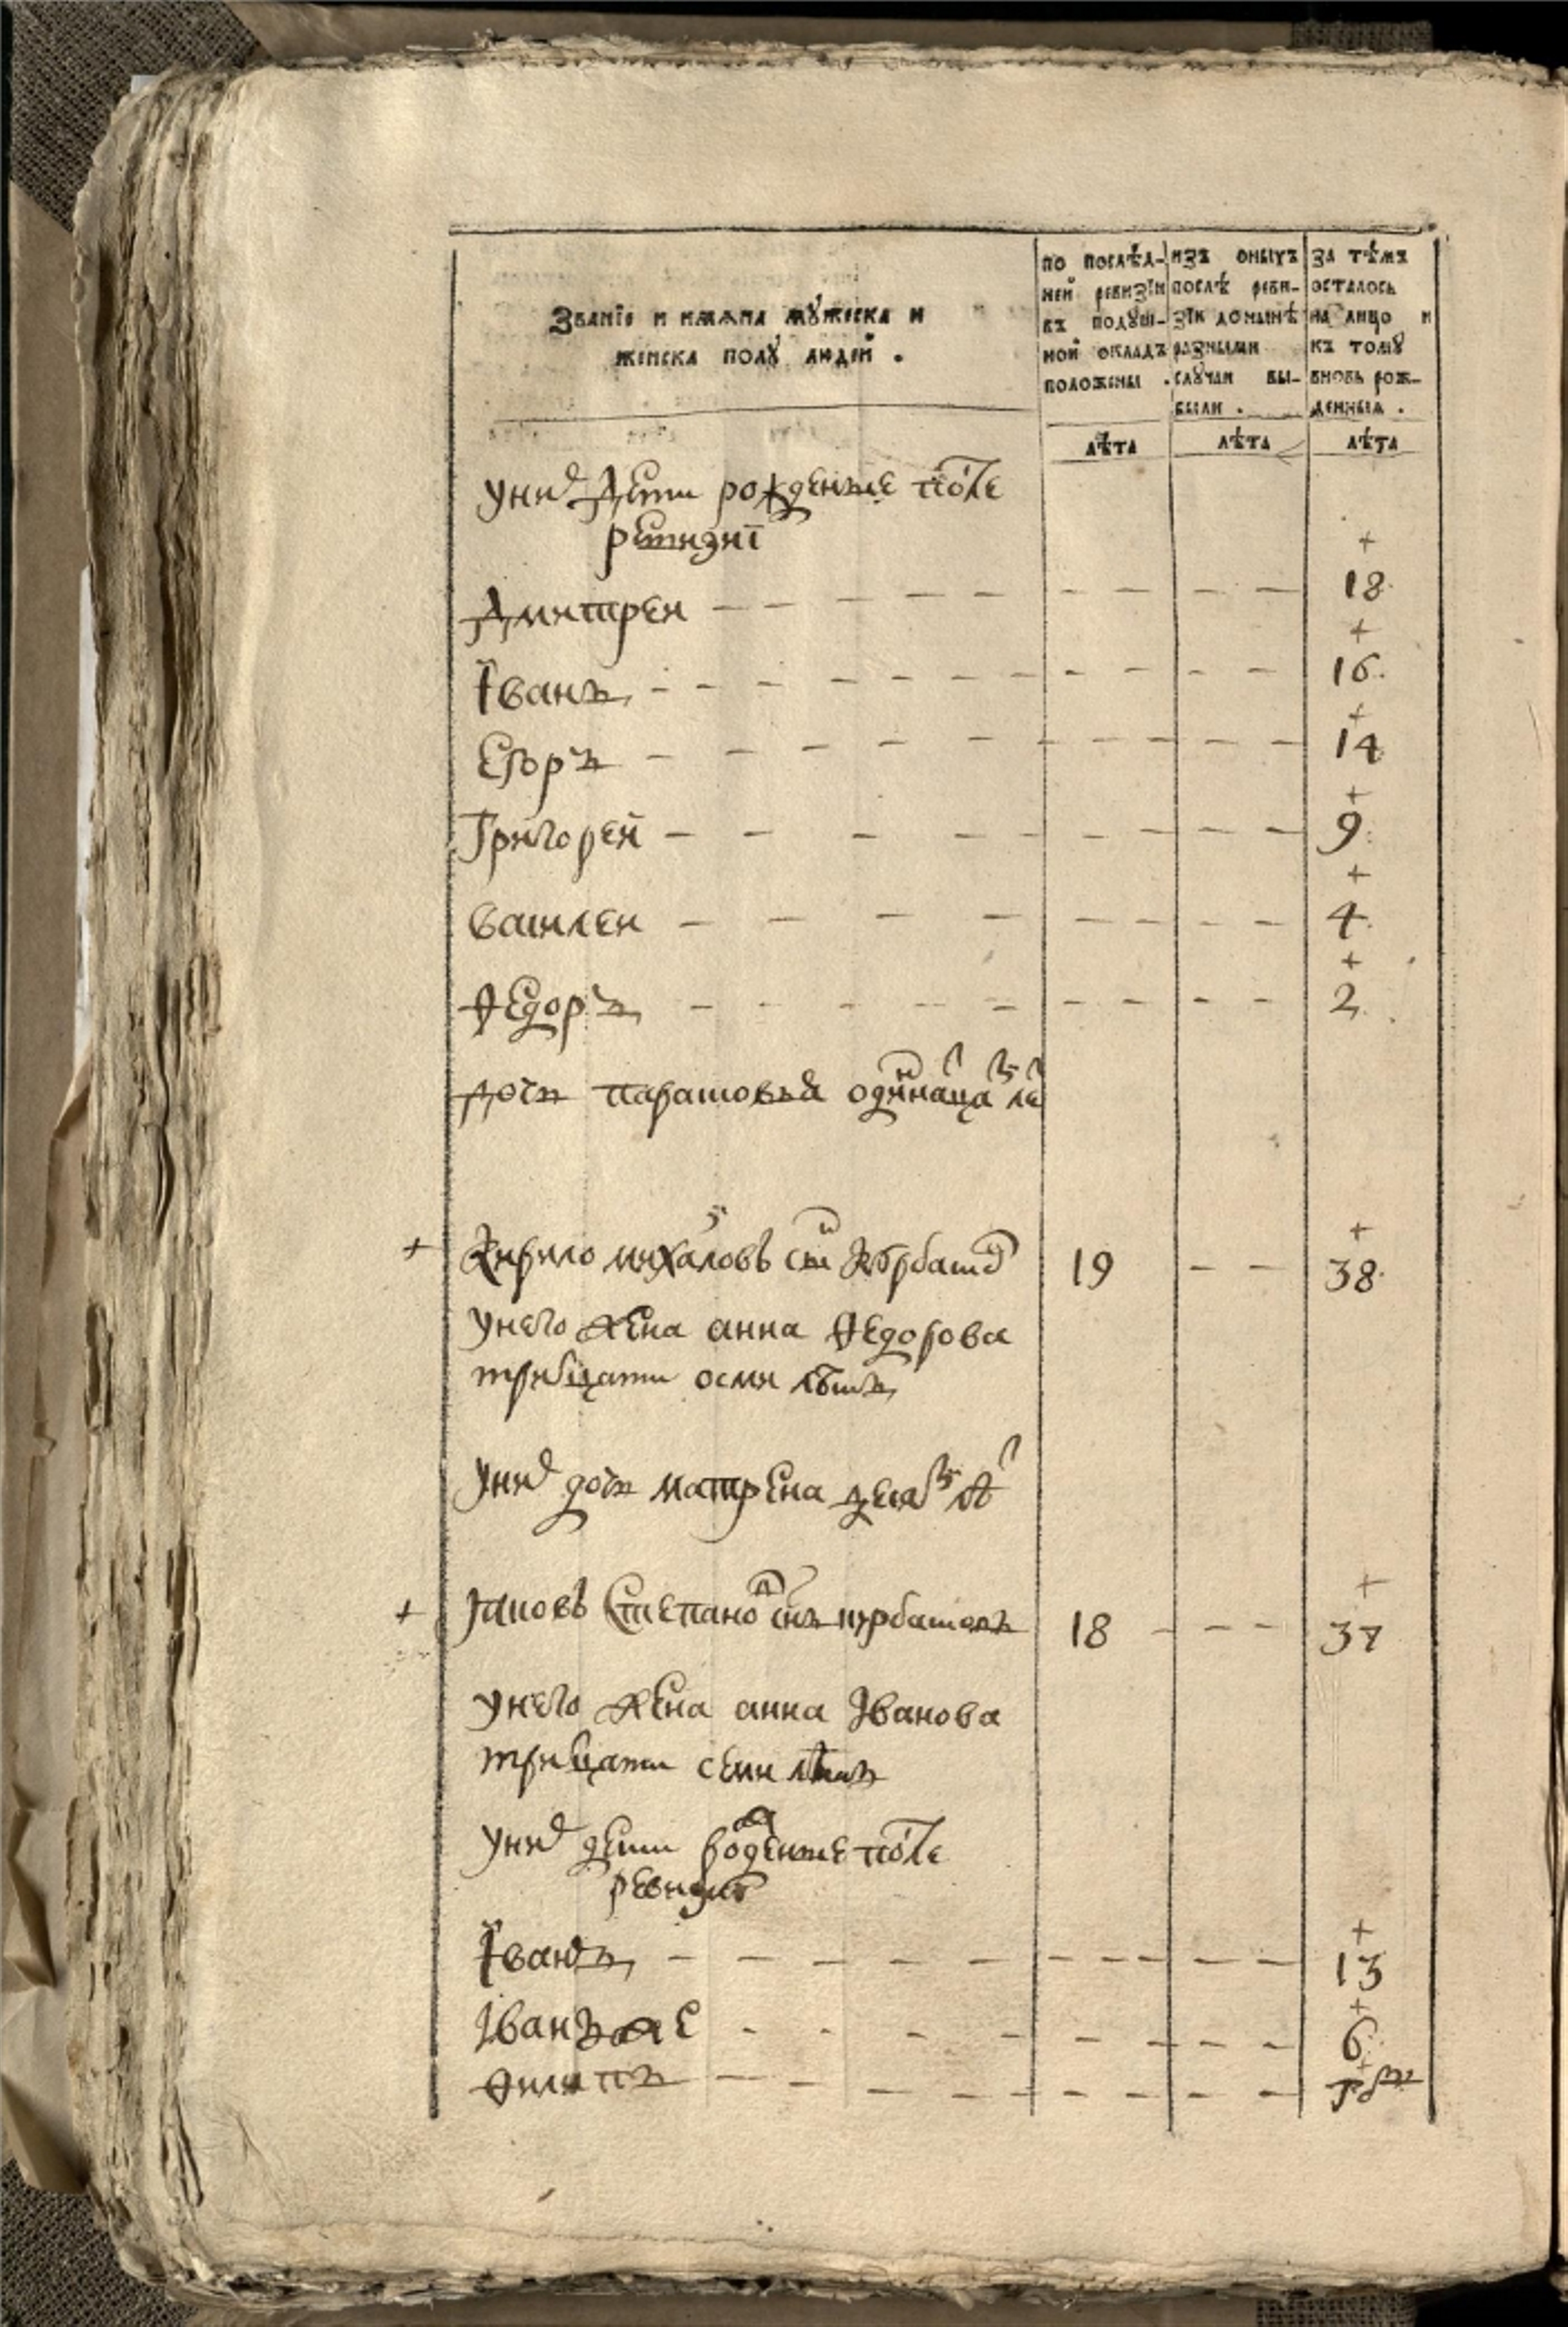 Званїе и имѧна мꙋжеска и
женска полꙋ людей .
по послѣд-
ней ревизїи
въ подꙋш-
ной окладъ
положены .
изъ оныхъ
послѣ реви-
зїи донынѣ
разными
слꙋчаи вы-
были .
за тѣмъ
осталось
на лицо и
къ томꙋ
вновь рож-
денныѧ .
лѣта лѣта лѣта
уних дети рожденные после
ревизиї
Дмитреи 18
Їванъ 16
Егоръ 14
Григорей 9
Василеи 4
Ѳедоръ 2
дочь парасковья одиннацати лет
Кирило михаловъ сынъ 19 38
унего жена анна Ѳедорова
тритцати осми лѣтъ
уних дочь матрена десяти лѣт
Яковъ Степанов снъ 18 37
унего жена анна Іванова
тритцати семи лѣтъ
уних дети рожденные после
ревизиї
Їванъ 13
Іванъ же 6
Ѳилипъ